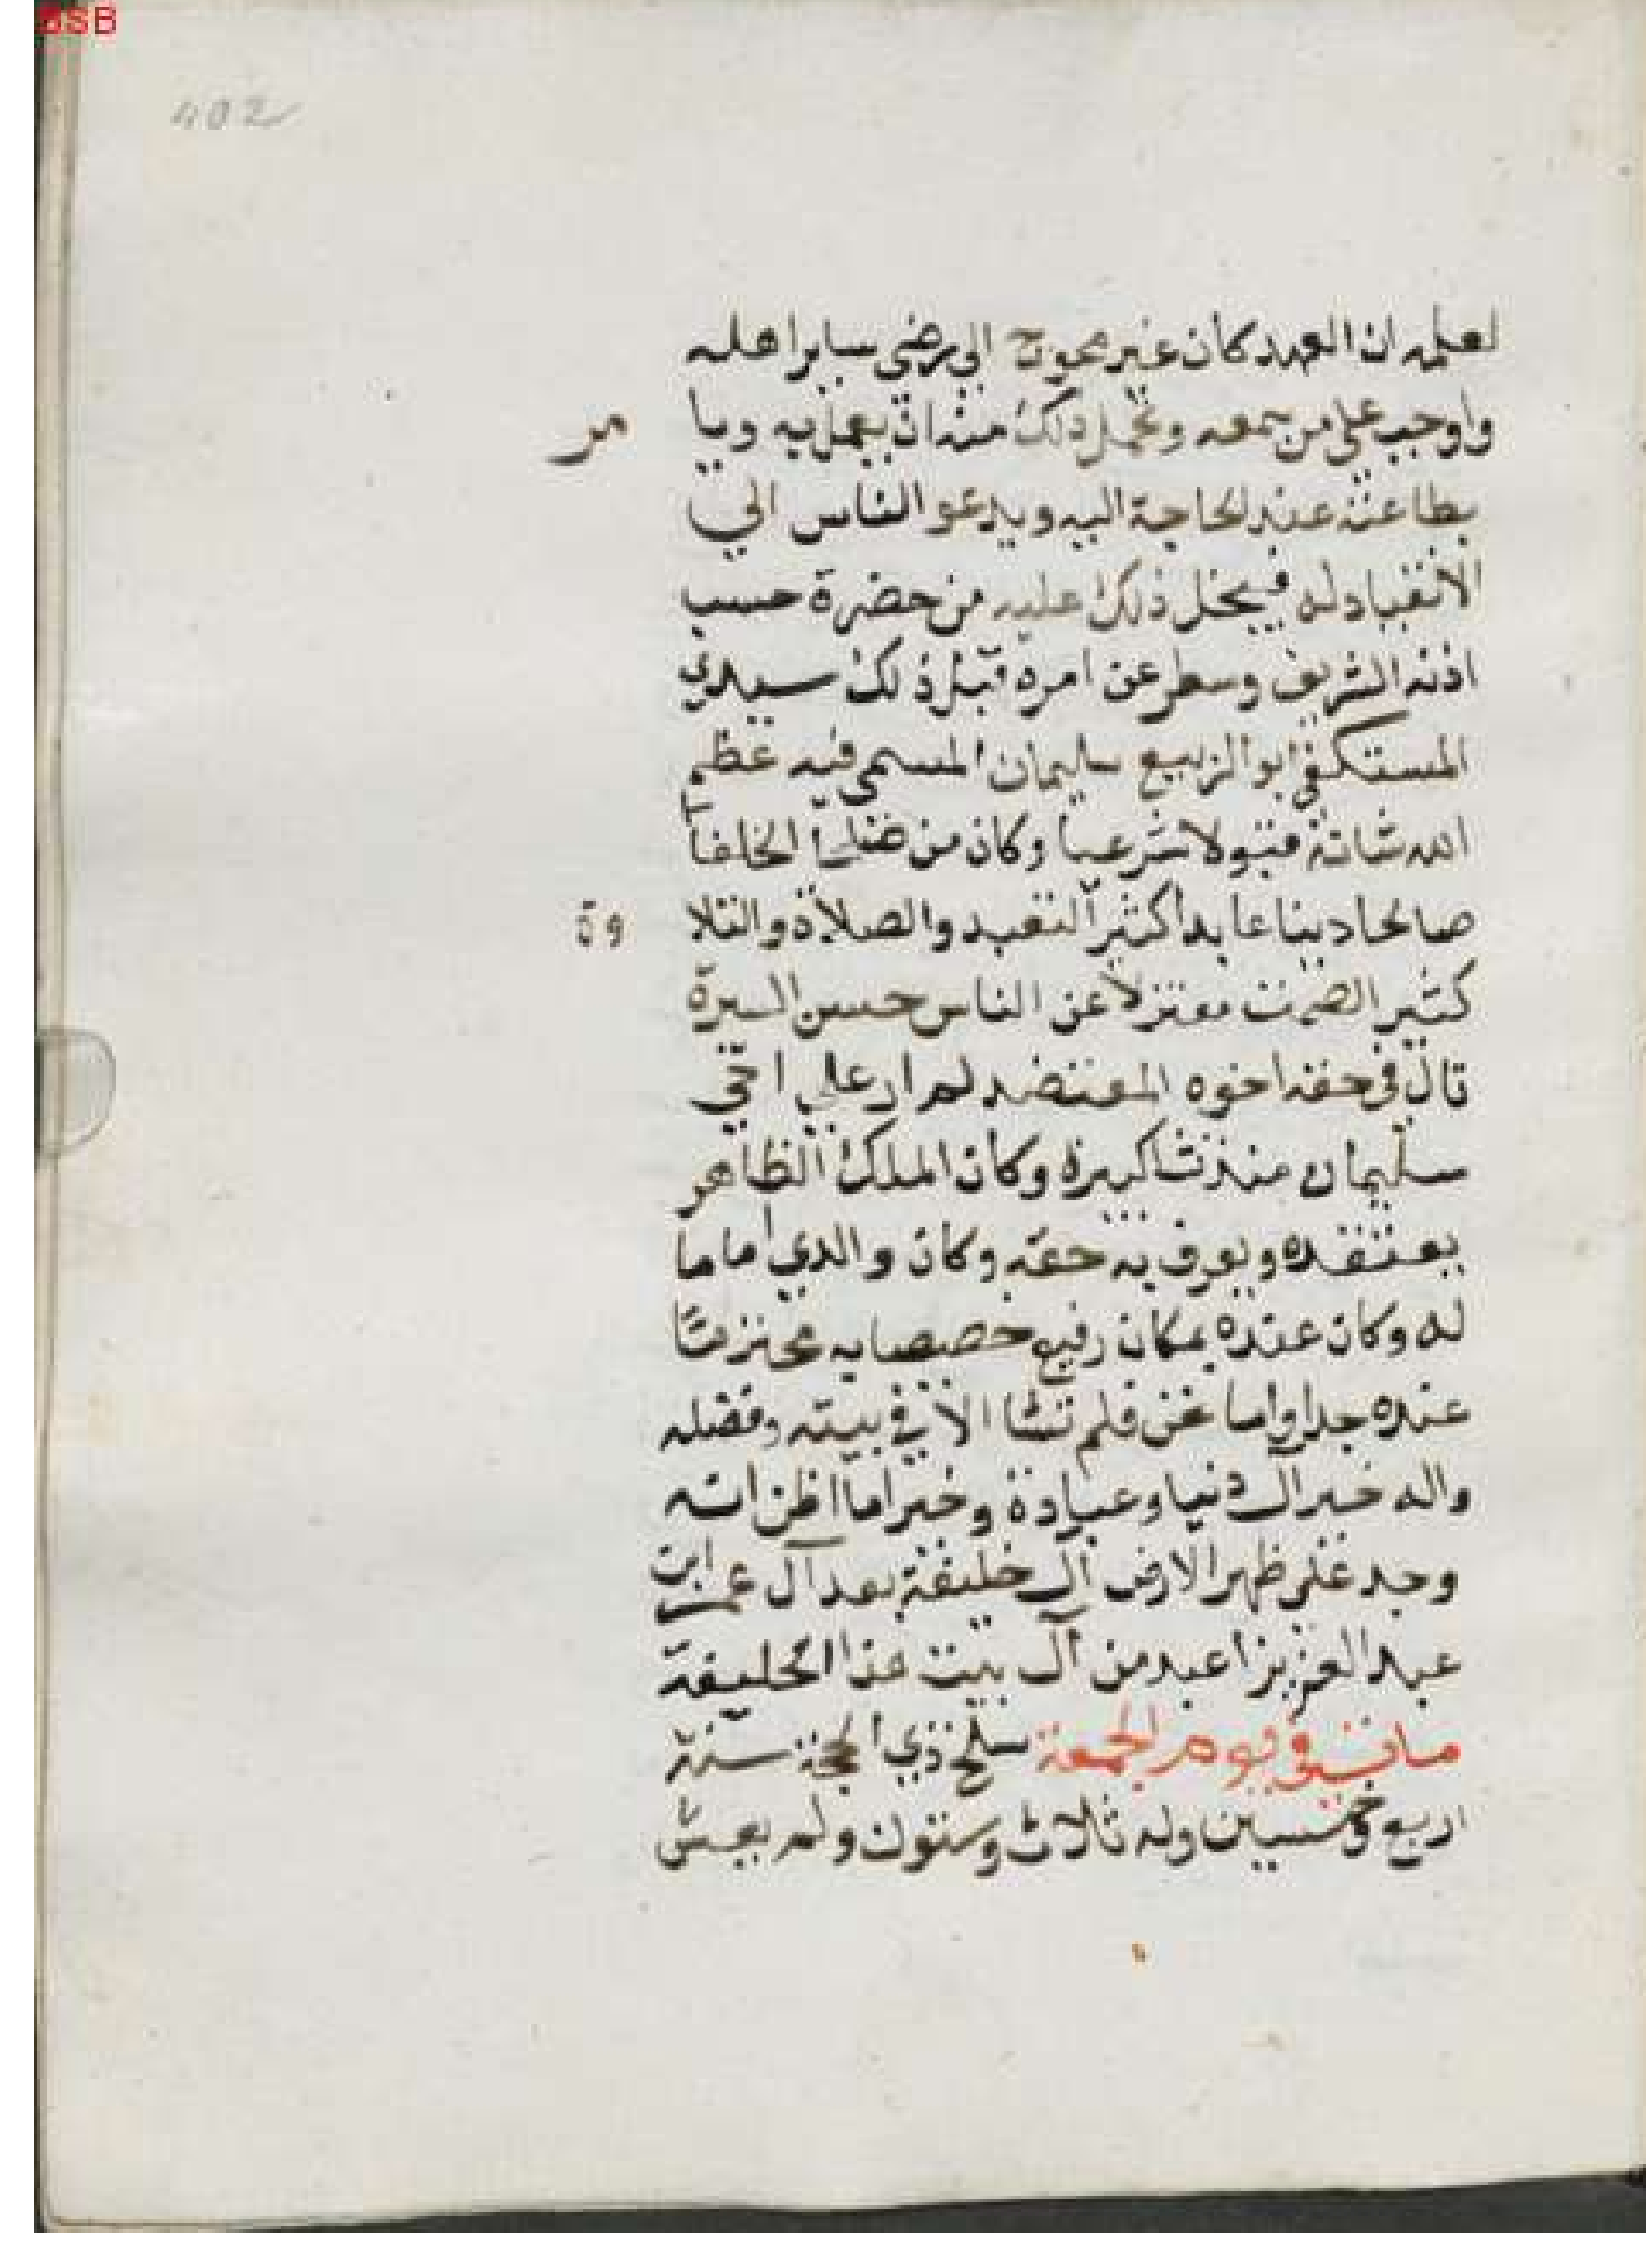 BSB
402
لعلمه ان العهد كان غير محوج الى رضى ساير اهله
واوجب على من سمعه وتحمل ذلك منه ان يعمل به ويا مر
بطاعته عند الحاجة اليه ويدعو الناس الي
الانقياد له فيحل ذلك عليه من حضرة حسب
اذنه الشريف وسطر عن امره قبل ذلك سيدي
المستكفي ابو الربيع سليمان المسمى فيه عظم
الله شانه قبولا شرعيا وكان من صلحا الخلفا
صالحا دينا عابدا كثير التعبد والصلاة والتلا وة
كثير الصمت معتزلا عن الناس حسن السيرة
قال في حقه اخوه المعتضد لم ار علي اخي
سليمان منذ نشا كبيرة وكان الملك الظاهر
يعتقده ويعرف به حقه وكان والدي اماما
له وكان عنده بمكان رفيع خصيصا به محترما
عنده جدا واما نحن فلم ننشا الا في بيته وفضله
واله خير آل دنيا وعبادة وخيرا ما اظن انه
وجد على ظهر الارض آل خليفة بعد آل عمر ابن
عبد العزيز اعبد من آل بيت هذا الخليفة
مات في يوم الجمعة سلخ ذي الحجة سنة
اربع وخمسين وله ثلاث وستون ولم يعش